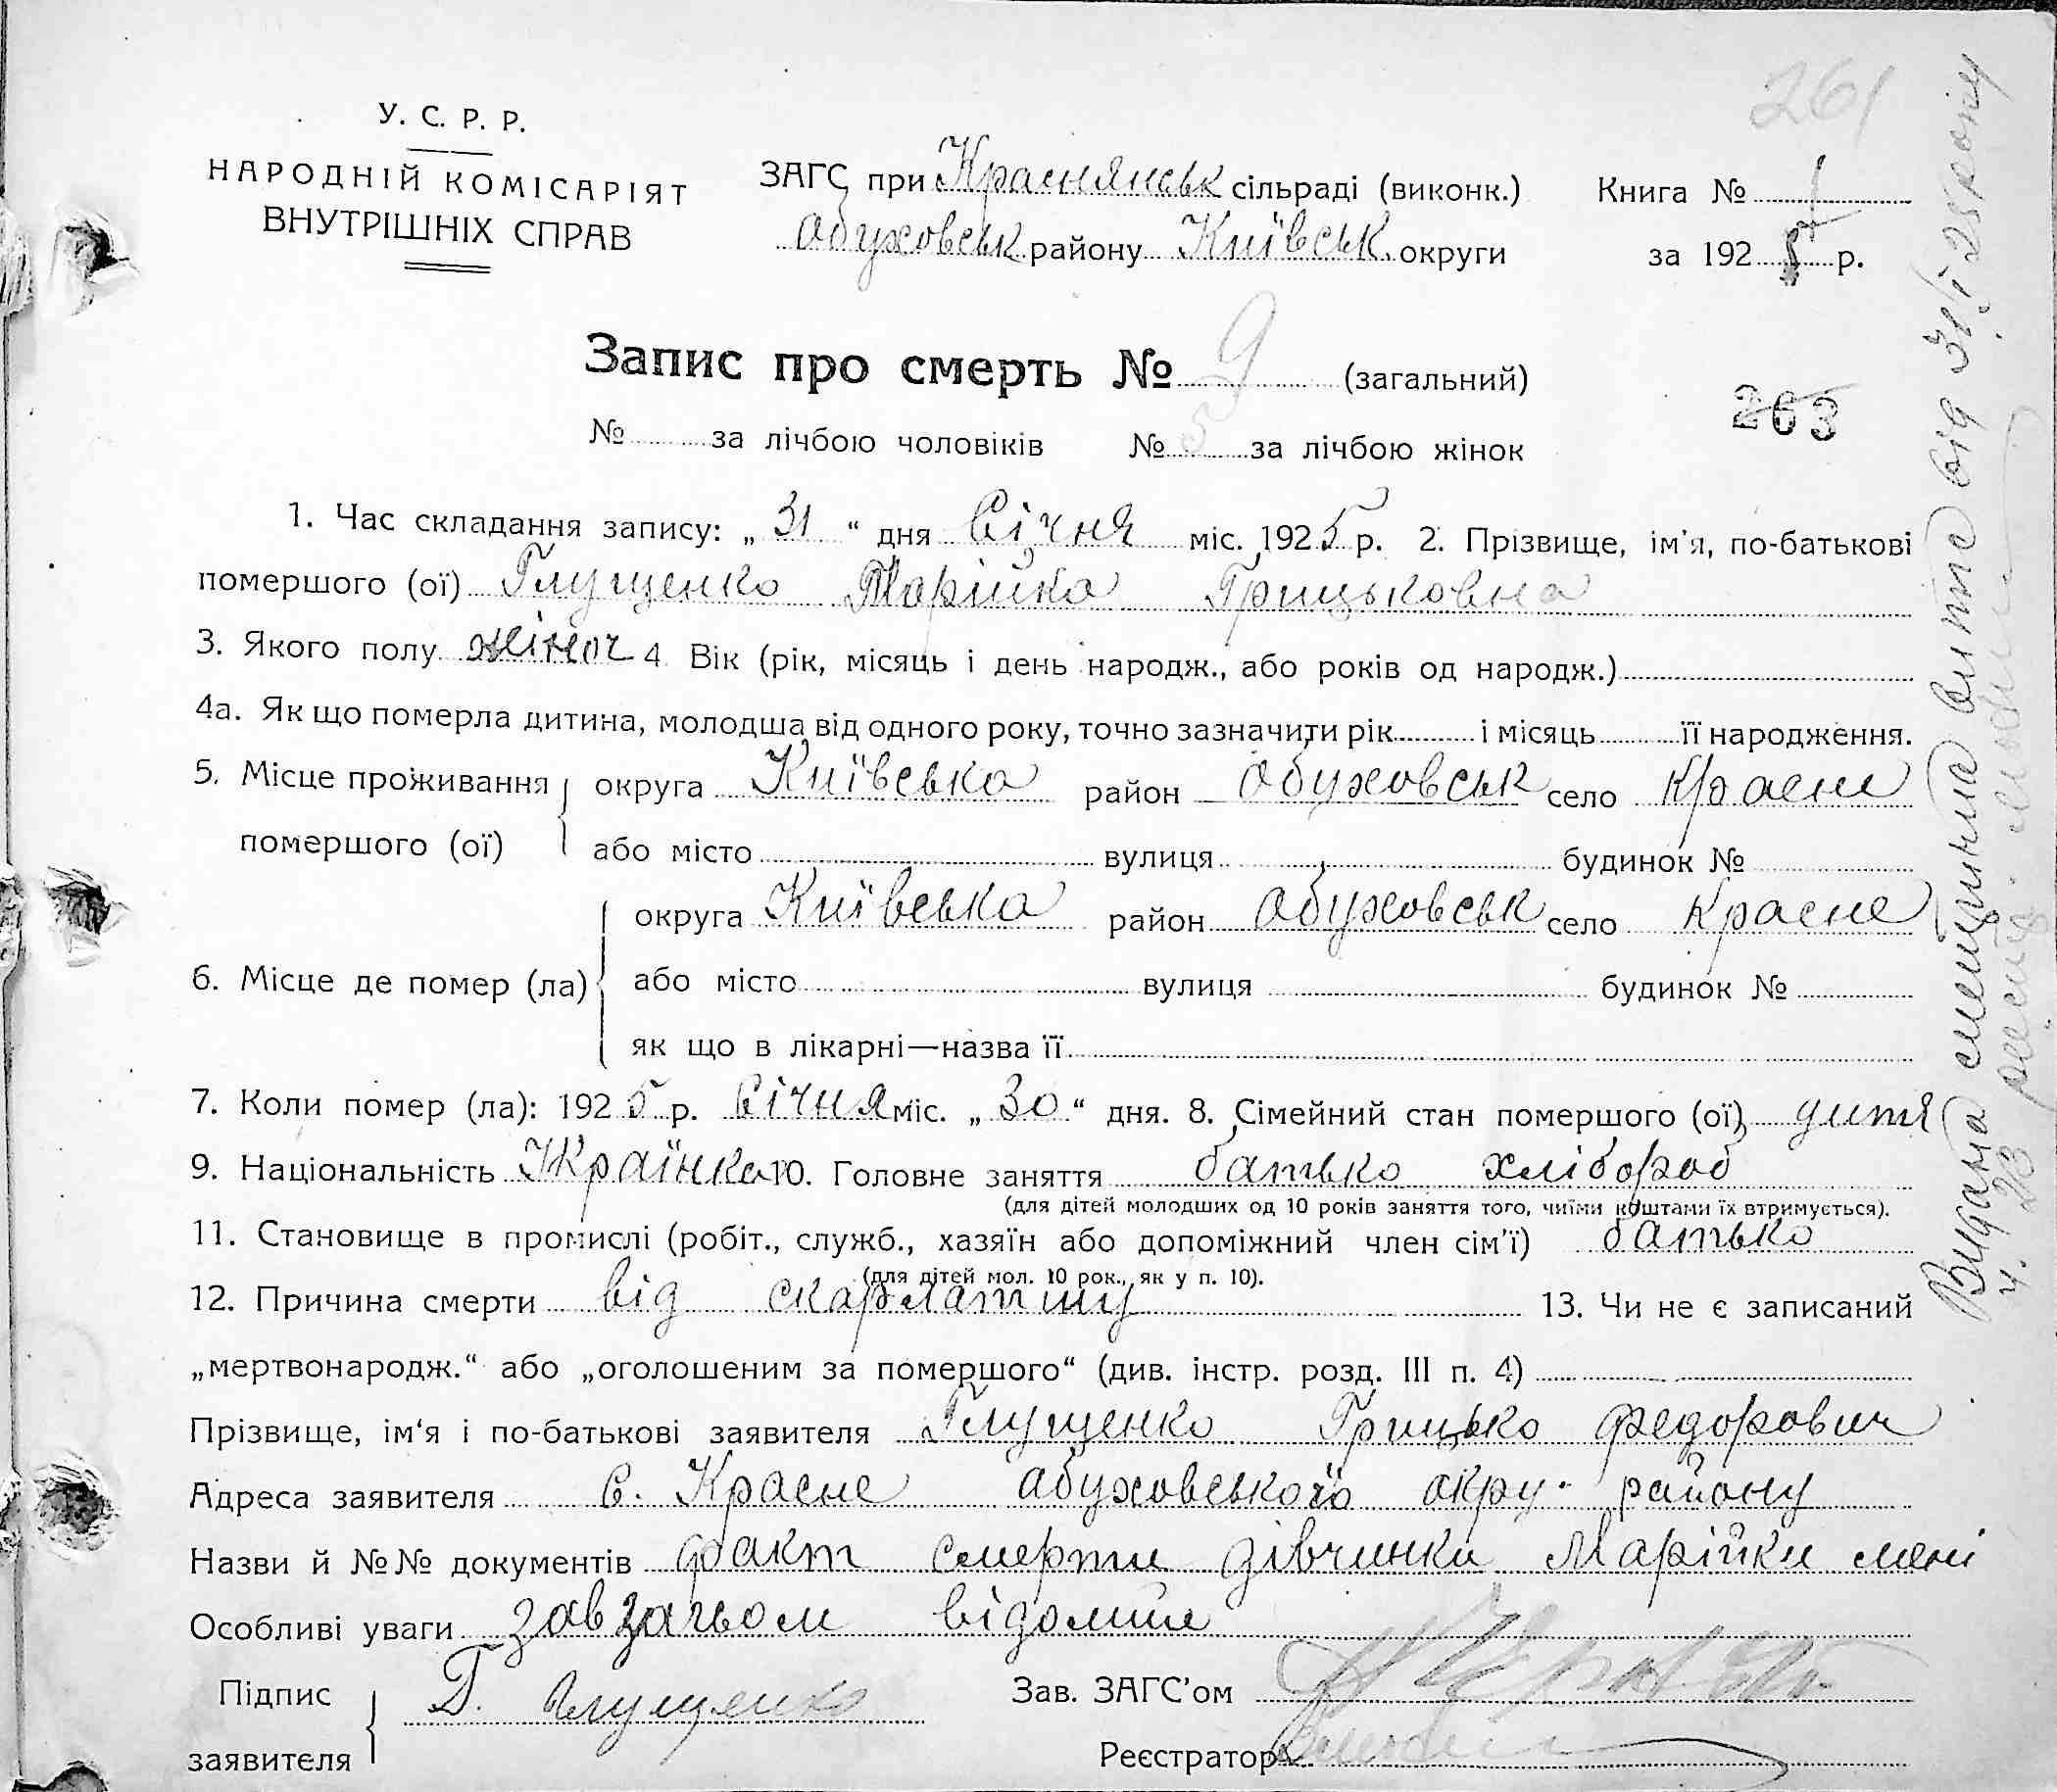 261
У. С. Р. Р.
НАРОДНІЙ КОМІСАРІЯТ
ВНУТРІШНІХ СПРАВ
ЗАГС при Краснянськ сільраді (виконк.)
Обуховськ району Київськ. округи
Книга №
за 192 5 р.
Запис про смерть № 9 (загальний)
№ за лічбою чоловіків № 5 за лічбою жінок
263
1. Час складання запису: „ 31 “ дня Січня міс. 192 5 р. 2. Прізвище, ім'я, по-батькові
помершого (ої) Глущенко Марійка Грицьковна
3. Якого полу жіноч 4 Вік (рік, місяць і день народж., або років од народж.)
4а. Як що померла дитина, молодша від одного року, точно зазначити рік і місяць її народження.
5. Місце проживання помершого (ої) округа Київська район Обуховськ село Красне
або місто вулиця будинок №
6. Місце де помер (ла) округа Київська район Обуховськ село Красне
або місто вулиця будинок №
як що в лікарні—назва її
7. Коли помер (ла): 192 5 р. Січня міс. „ 30 “ дня. 8. Сімейний стан помершого (ої) дитя
9. Національність Українка 10. Головне заняття батько хлібороб
(для дітей молодших од 10 років заняття того, чиїми коштами їх втримується).
11. Становище в промислі (робіт., служб., хазяїн або допоміжний член сім'ї) батько
(для дітей мол. 10 рок., як у п. 10).
12. Причина смерти від скарлатини 13. Чи не є записаний
„мертвонародж.“ або „оголошеним за помершого“ (див. інстр. розд. III п. 4)
Прізвище, ім'я і по-батькові заявителя Глущенко Грицько Федорович
Адреса заявителя С. Красне Обуховського окру. району
Назви й №№ документів факт смерти дівчинки Марійки мені
Особливі уваги завзагсом відомий
Підпис заявителя Г. Глущенко
Зав. ЗАГС'ом
Реєстратор
Видана смертна витяг від 31/I 25 року
ч. 23